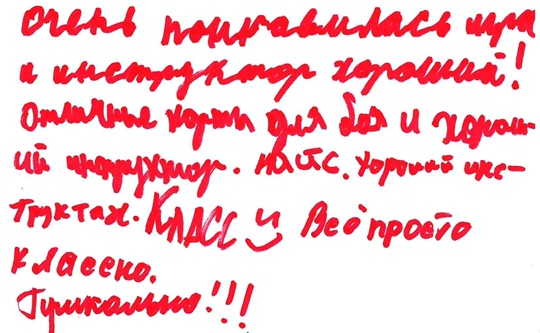 Очень понравилась игра
и инструктор хороший!
Отличные корты для боя и хорош-
ий инструктор. НАЙС. Хороший инс-
труктаж. КЛАСС Всё просто
классно.
Прикольно!!!